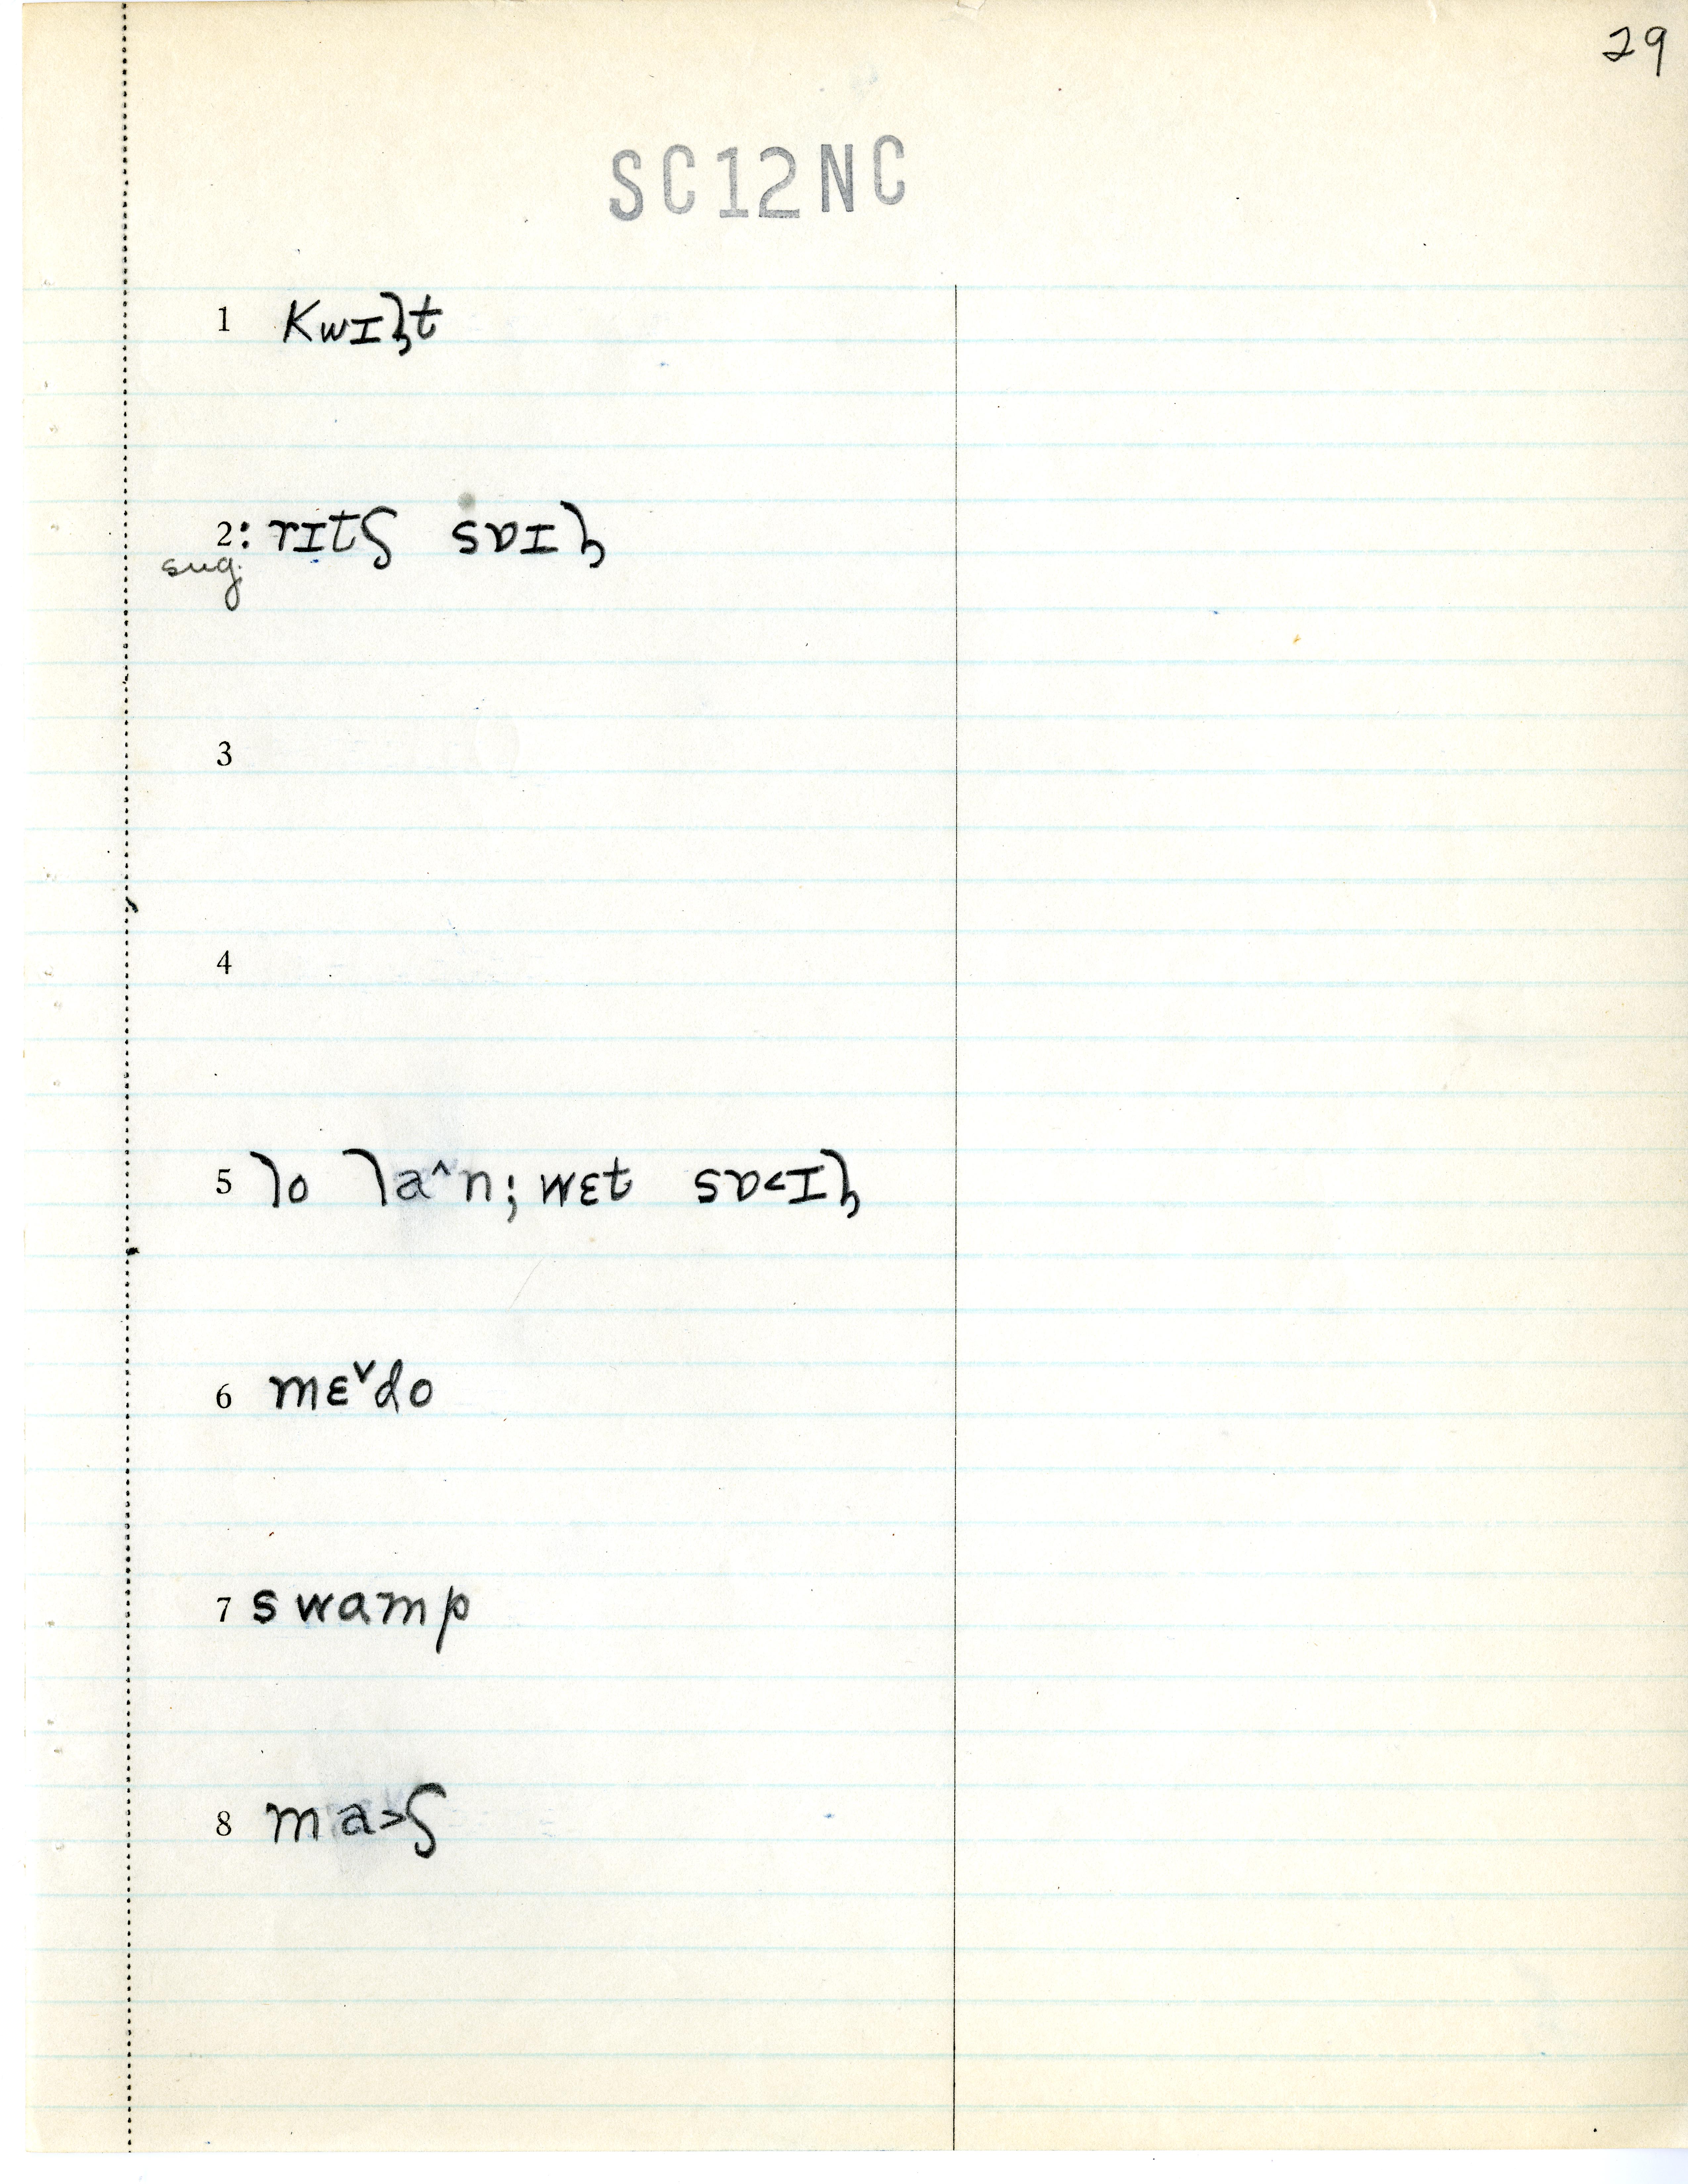 29
SC12NC
1 kwɪɫt
2: rɪtʃ sɒɪɫ
sug.
3
4
5 lo la^n; wɛt sɒ<ɪɫ
6 mɛˇdo
7 swamp
8 ma>ʃ